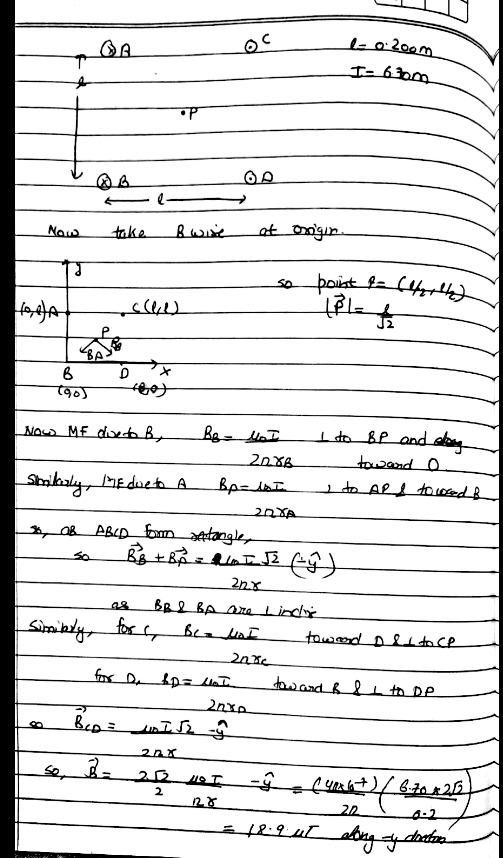 ⊗A ⊙C l = 0.200m
l I = 6.70m
•P
⊗B ⊙D
l
Now take B wire at origin.
y so point P = (l/2, l/2)
(0,l) A C(l,l) |P⃗| = l/√2
P
BA
B D x
(0,0) (l,0)
Now MF due to B, BB = μ0I/2πrB ⊥ to BP and along toward D.
Similarly, MF due to A BA = μ0I/2πrA ⊥ to AP & toward B
so, as ABCD form rectangle,
so B⃗B + B⃗A = μ0I√2/2πr (-ŷ)
as BB & BA are ⊥
Similarly, for C, BC = μ0I/2πrC toward D & ⊥ to CP
for D, BD = μ0I/2πrD toward B & ⊥ to DP
so B⃗CD = μ0I√2/2πr -ŷ
so, B⃗ = 2√2/2 μ0I/πr -ŷ = (4π×10⁻⁷)/2π (6.70×2√2/0.2)
= 18.9 μT along -y direction